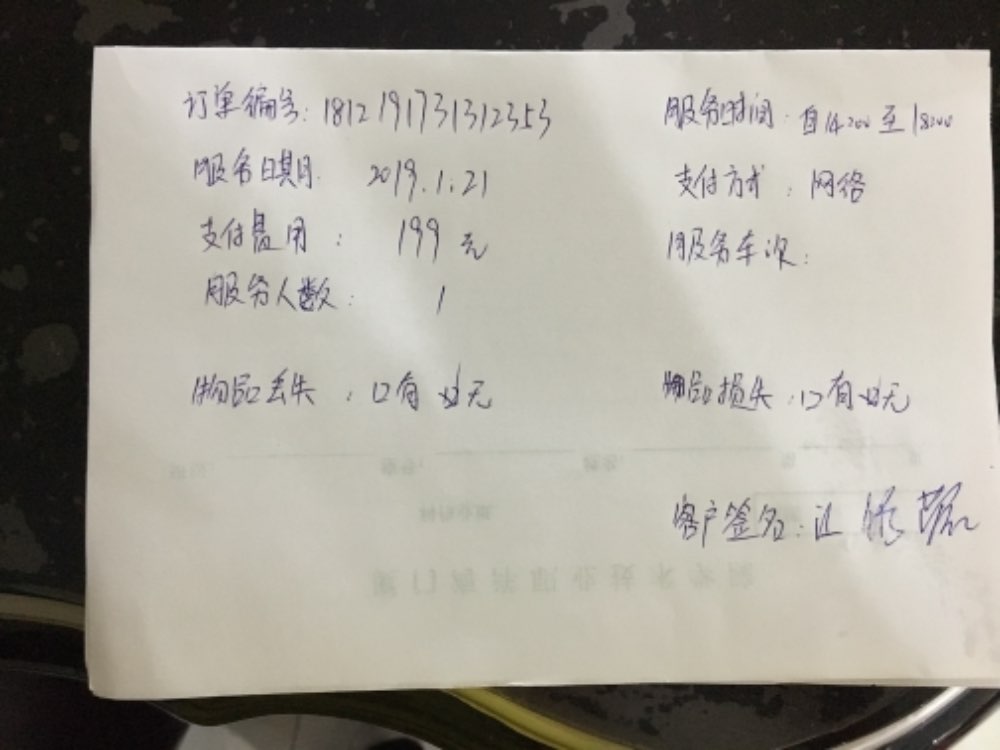 订单编号：18121917731312353 服务时间：自14:00至18:00
服务日期：2019.1.21 支付方式：网络
支付费用：199元 服务车次：
服务人数：1
物品丢失：口有 ☑无 物品损失：口有 ☑无
客户签名：
厦门海洋职业技术学院